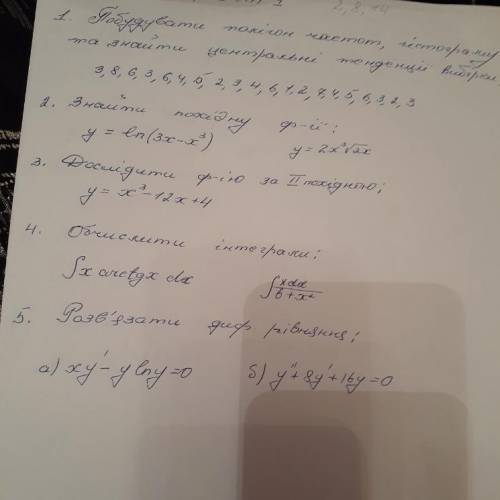 1. Побудувати полігон частот, гістограму
та знайти центральні тенденції вибірки
3, 8, 6, 3, 6, 4, 5, 2, 3, 4, 6, 1, 2, 7, 4, 5, 6, 3, 2, 3
2. Знайти похідну ф-ії:
y = ln(3x-x³) y = 2x³√2x
3. Дослідити ф-ію за II похідною;
y = x³-12x+4
4. Обчислити інтеграли;
∫x arctgx dx ∫xdx/6+x²
5. Розв'язати диф рівняння;
а) xy'-y lny=0 б) y''+8y'+16y=0